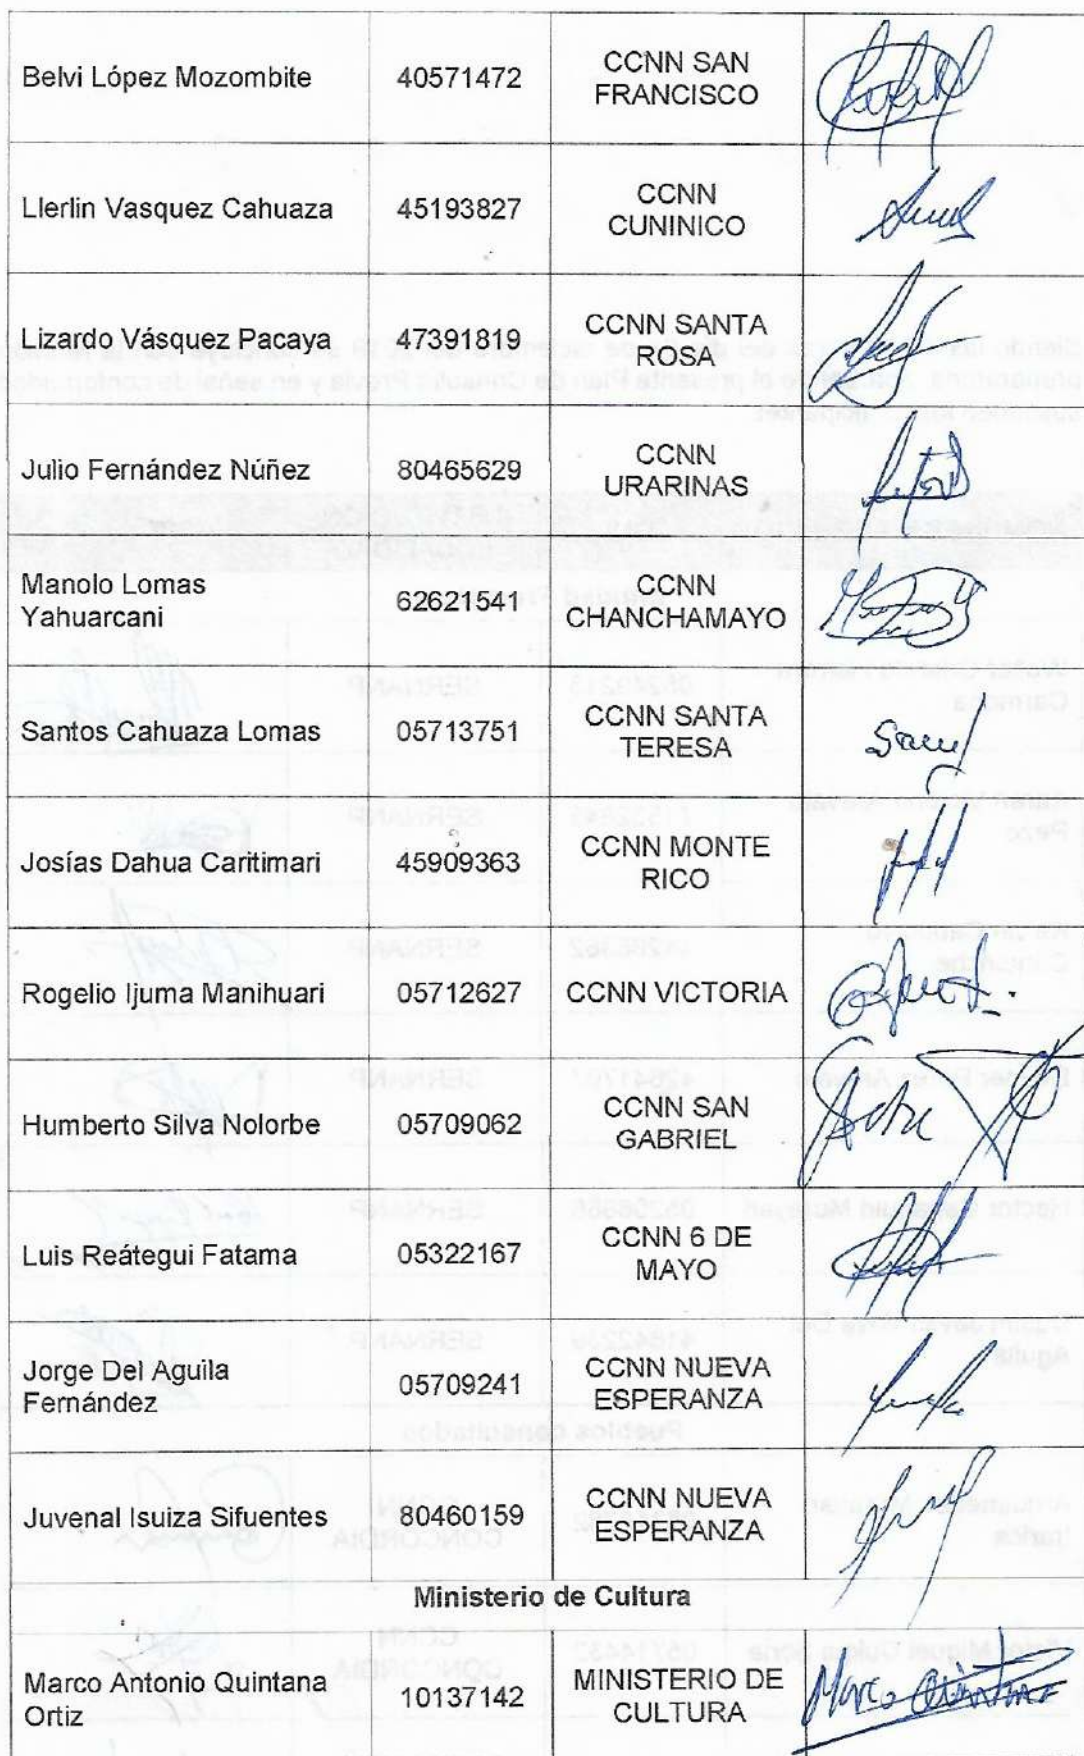 Belvi López Mozombite 40571472 CCNN SAN FRANCISCO
Llerlin Vasquez Cahuaza 45193827 CCNN CUNINICO
Lizardo Vásquez Pacaya 47391819 CCNN SANTA ROSA
Julio Fernández Núñez 80465629 CCNN URARINAS
Manolo Lomas Yahuarcani 62621541 CCNN CHANCHAMAYO
Santos Cahuaza Lomas 05713751 CCNN SANTA TERESA
Josías Dahua Caritimari 45909363 CCNN MONTE RICO
Rogelio Ijuma Manihuari 05712627 CCNN VICTORIA
Humberto Silva Nolorbe 05709062 CCNN SAN GABRIEL
Luis Reátegui Fatama 05322167 CCNN 6 DE MAYO
Jorge Del Aguila Fernández 05709241 CCNN NUEVA ESPERANZA
Juvenal Isuiza Sifuentes 80460159 CCNN NUEVA ESPERANZA
Ministerio de Cultura
Marco Antonio Quintana Ortiz 10137142 MINISTERIO DE CULTURA Marco Quintana